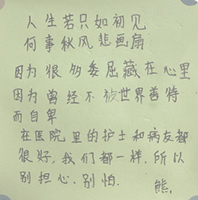 人生若只如初见
何事秋风悲画扇
因为很多委屈藏在心里
因为曾经不被世界善待
而自卑
在医院里的护士和病友都
很好，我们都一样，所以
别担心，别怕.
熊